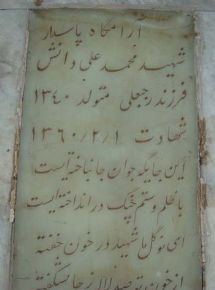 آرامگاه پاسدار
شهید محمد علی دانش
فرزند رجبعلی متولد ۱۳۴۰
شهادت ۱۳۶۰/۲/۱
این جایگه جوان جانباخته ایست
با ظلم و ستم بجنگ در انداخته ایست
ای نو گل شهید در خون خفته
از خون تو صد لاله ز جا بشکفته